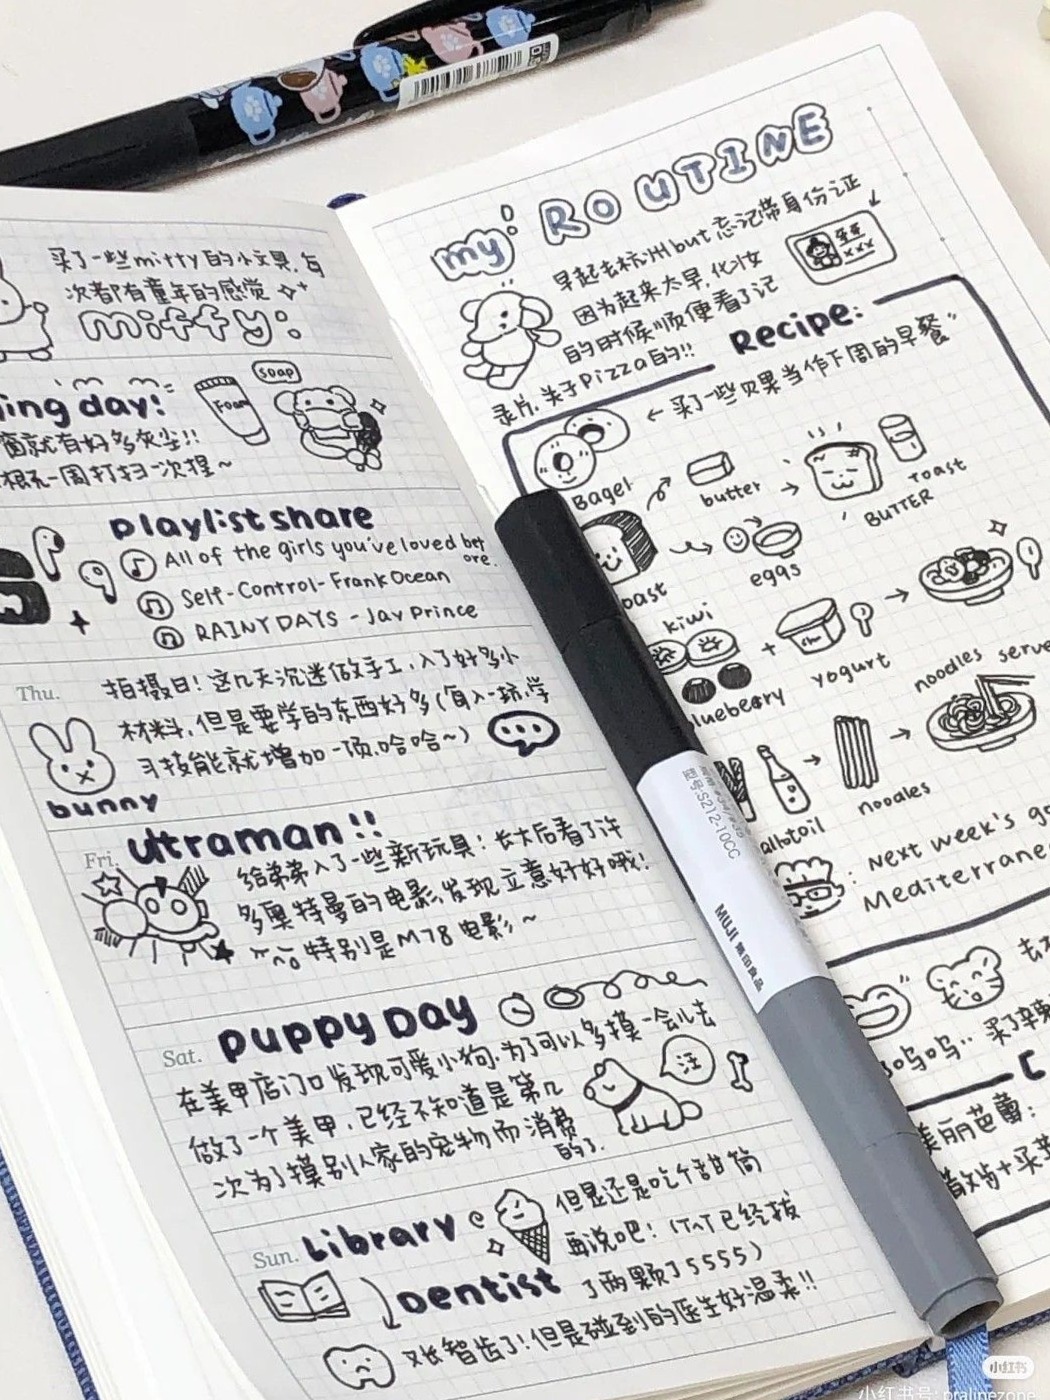 买了一些mitty的小文具,每
次都有童年的感觉
miffy:
ing day!
Foam
soap
窗就有好多灰尘!!
一周打扫一次捏~
Playlist share
All of the girls you've loved bef
ore.
Self-Control-Frank Ocean
RAINY DAYS - Jay Prince
Thu.
拍摄日!这几天沉迷做手工,入了好多小
材料,但是要学的东西好多(每入一坑,学
习技能就增加一项,哈哈~)
bunny
Fri.
Ultraman!!
给弟弟入了一些新玩具:长大后看了许
多奥特曼的电影,发现立意好好哦!
特别是M78电影~
Sat.
Puppy Day
在美甲店门口发现可爱小狗,为了可以多摸一会儿去
做了一个美甲,已经不知道是第几
次为了摸别人家的宠物而消费
的了.
汪
Sun.
Library
但是还是吃个甜筒
再说吧!(TnT已经拔
Dentist
了两颗了5555)
又长智齿了!但是碰到的医生好温柔!!
my ROUTINE
早起去杭州but忘记带身份证
因为起来太早,化妆
的时候顺便看了记
录片,关于Pizza的!!
Recipe:
买了一些贝果当作下周的早餐
Bagel
butter
Toast
BUTTER
oast
eggs
kiwi
yogurt
lueberry
noodles serve
noodles
Next week's go
Mediterrane
去
呜呜.. 买了
C
美丽芭蕾:
散步+买
型号:S212-10CC
MUJI 無印良品
小红书
小红书号: pralinezone